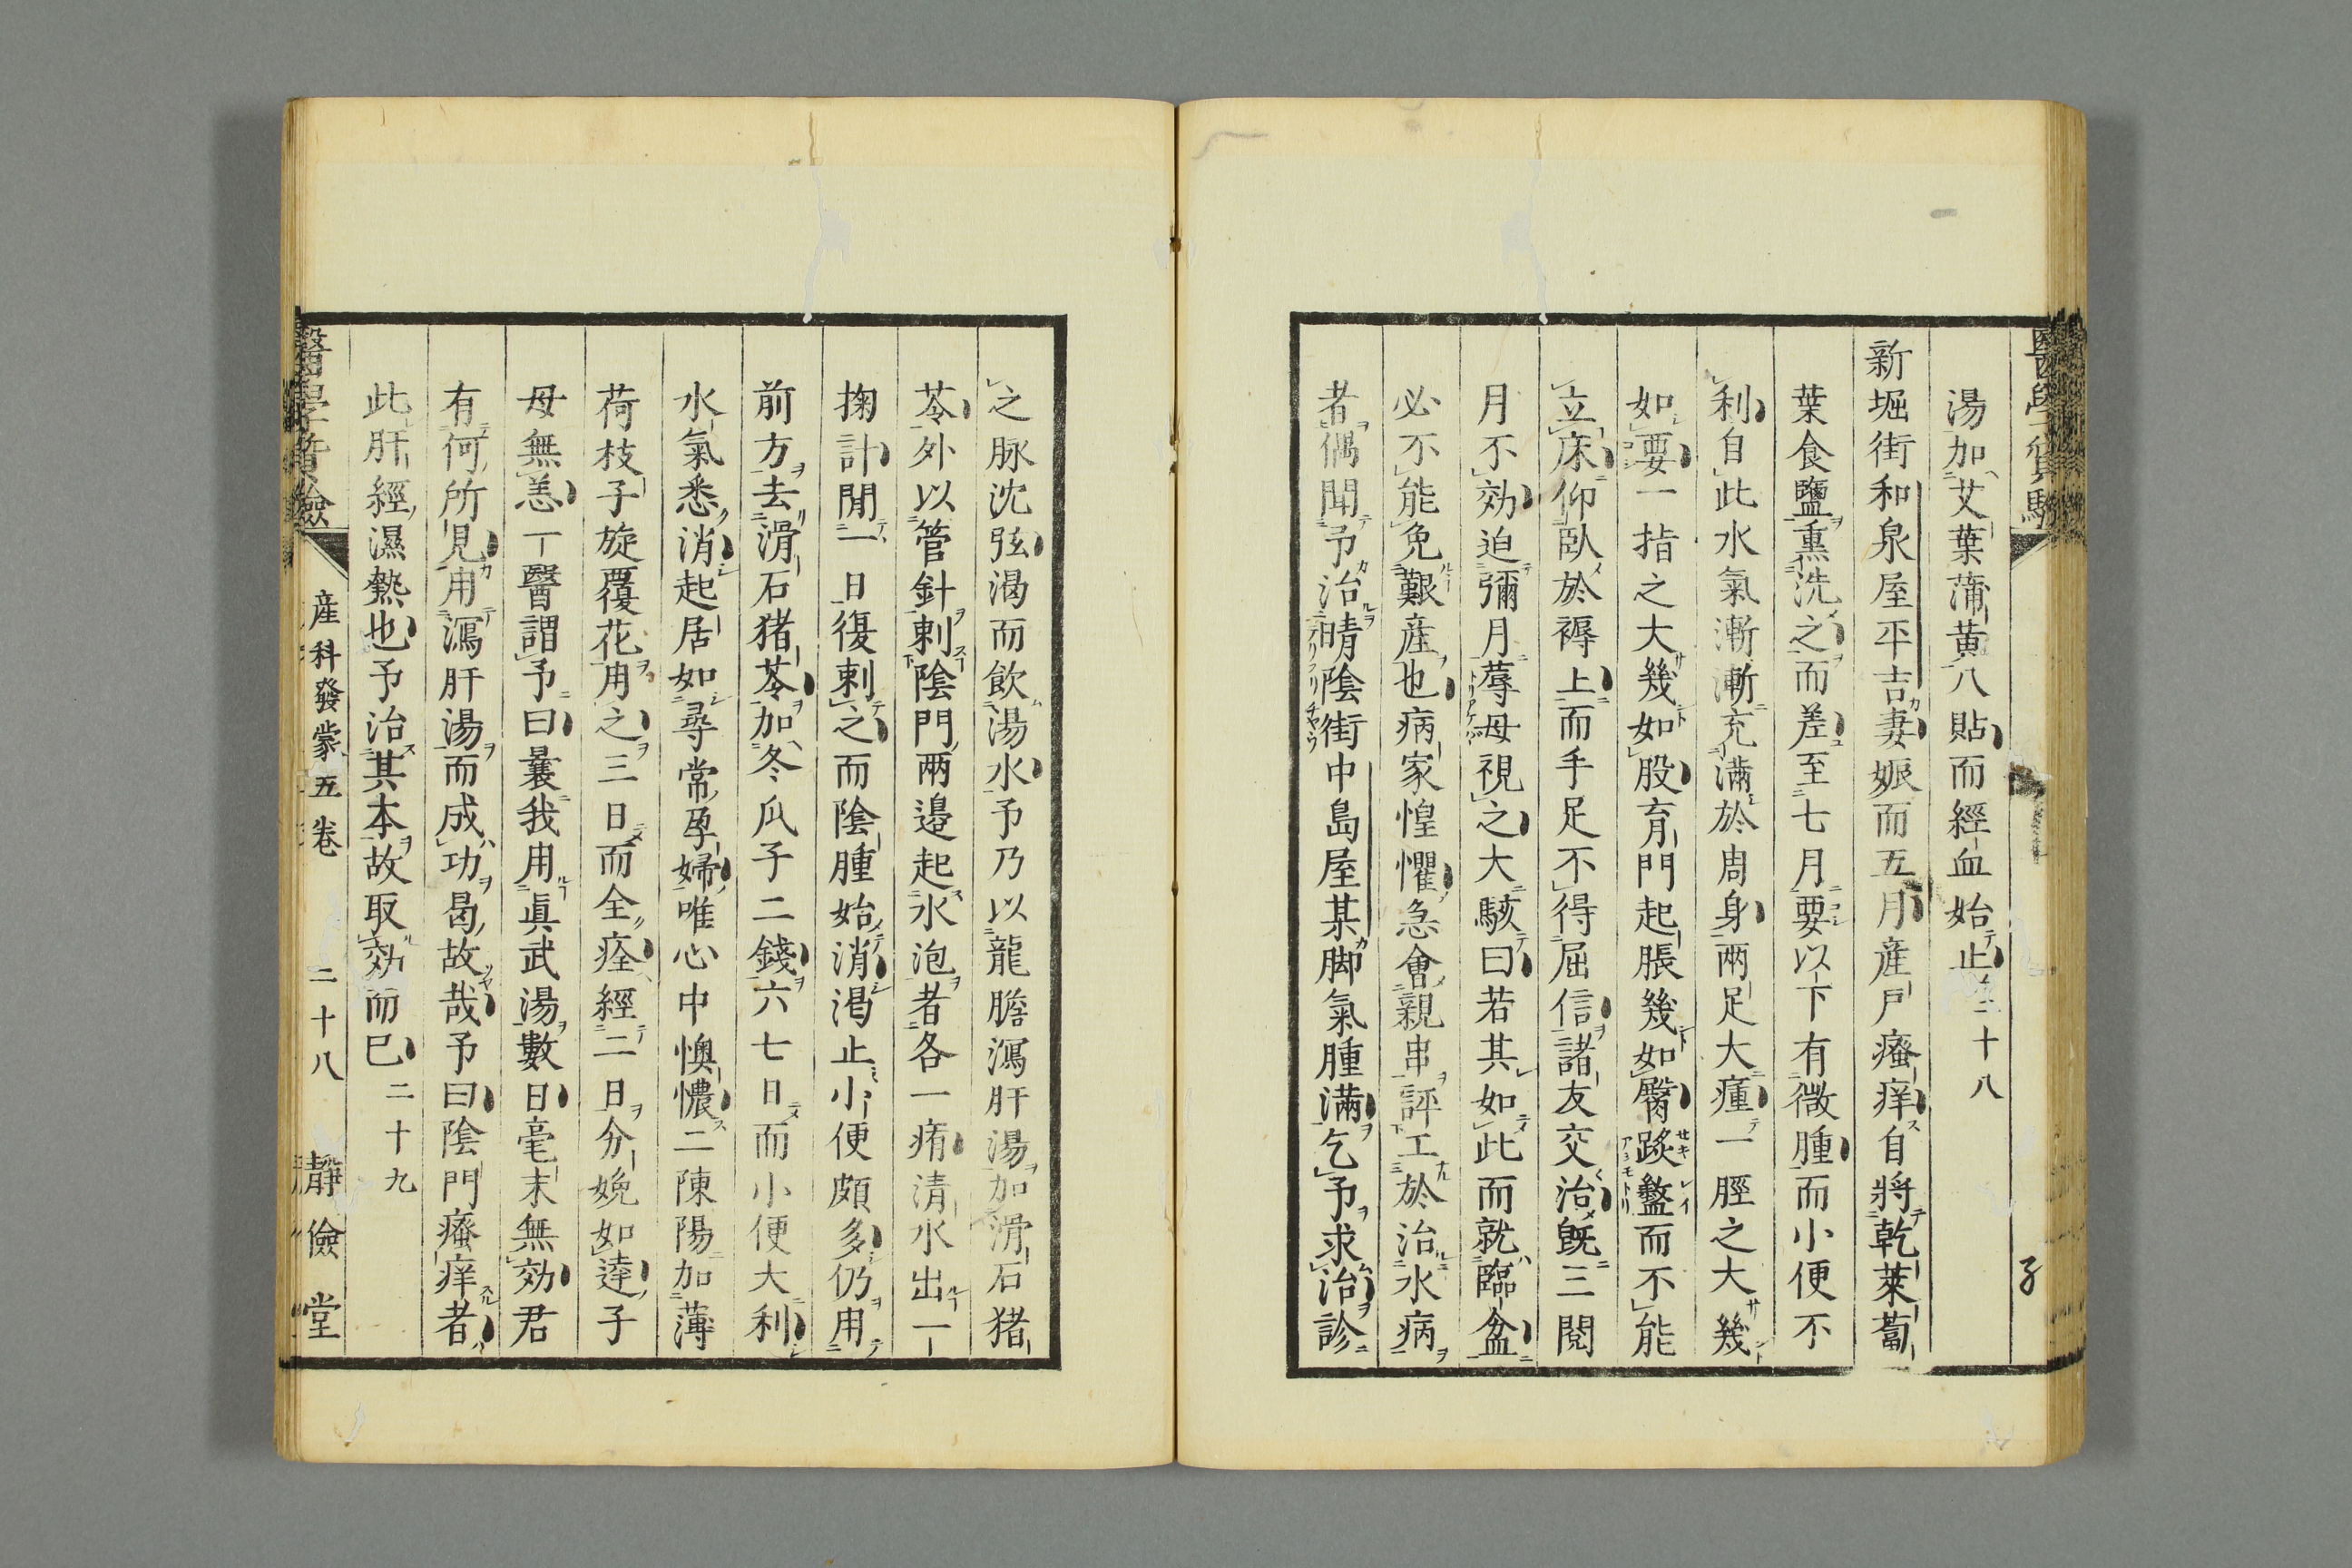 湯加艾葉蒲黃八貼而經血始止二十八
新堀街和泉屋平吉妻娠而五月産戸癢痒自將乾萊蔔
葉食鹽熏洗之而差至七月要以下有微腫而小便不
利自此水氣漸漸充滿於周身兩足大瘇一脛之大幾
如要一指之大幾如股育門起脹幾如臀踐盭而不能
立床仰臥於褥上而手足不得屈信諸友交治既三閱
月不効迫彌月蓐母視之大駭曰若其如此而就臨盆
必不能免艱産也病家惶懼急會親串評工於治水病
者偶聞予治晴陰街中島屋某脚氣腫滿乞予求治診
之脉沈弦渴而飲湯水予乃以龍膽瀉肝湯加滑石猪
苓外以管針刺陰門兩邉起水泡者各一痏清水出一
掬計間一日復刺之而陰腫始消渇止小便頗多仍用
前方去滑石猪苓加冬瓜子二錢六七日而小便大利
水氣悉消起居如尋常孕婦唯心中懊憹二陳陽加薄
荷枝子旋覆花用之三日而全痊經二日分娩如達子
母無恙一醫謂予曰曩我用眞武湯數日毫末無効君
有何所見用瀉肝湯而成功曷故哉予曰陰門癢痒者
此肝經濕熱也予治其本故取効而已二十九
産科發蒙五卷 二十八 靜儉堂